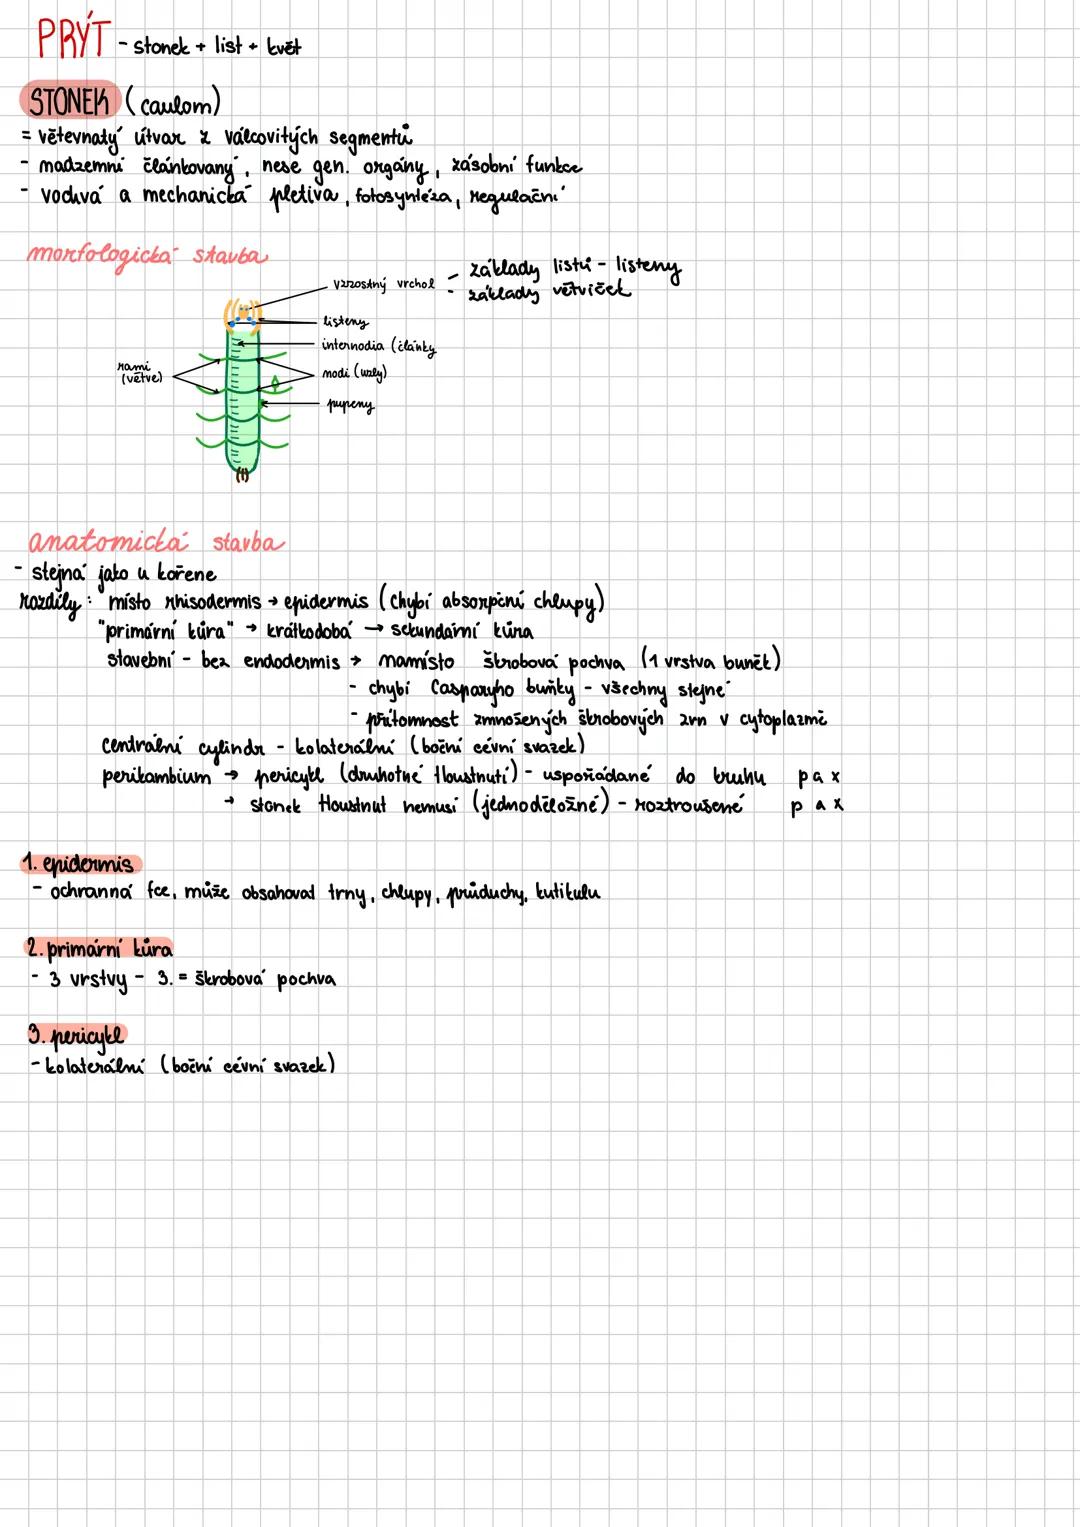 PRÝT - stonek + list + květ
STONEK (caulom)
= větevnatý útvar z válcovitých segmentů
- nadzemní článkovaný, nese gen. orgány, zásobní funkce
- vodivá a mechanická pletiva, fotosyntéza, regulační
morfologická stavba
vzrostný vrchol - základy listů - listeny
- základy větviček
listeny
internodia (články
rami
(větve)
nodi (uzly)
pupeny
anatomická stavba
- stejná jako u kořene
rozdíly: místo rhisodermis → epidermis (chybí absorpční chlupy)
"primární kůra" → krátkodobá → sekundární kůra
stavební - bez endodermis → namísto škrobová pochva (1 vrstva buněk)
- chybí Casparyho buňky - všechny stejné
- přítomnost zmnožených škrobových zrn v cytoplazmě
centrální cylindr - kolaterální (boční cévní svazek)
perikambium → pericykl (druhotné tloustnutí) - uspořádané do kruhu p a x
→ stonek tloustnut nemusí (jednoděložné) - roztroušené p a x
1. epidermis
- ochranná fce, může obsahovat trny, chlupy, průduchy, kutikulu
2. primární kůra
- 3 vrstvy - 3. = škrobová pochva
3. pericykl
- kolaterální (boční cévní svazek)